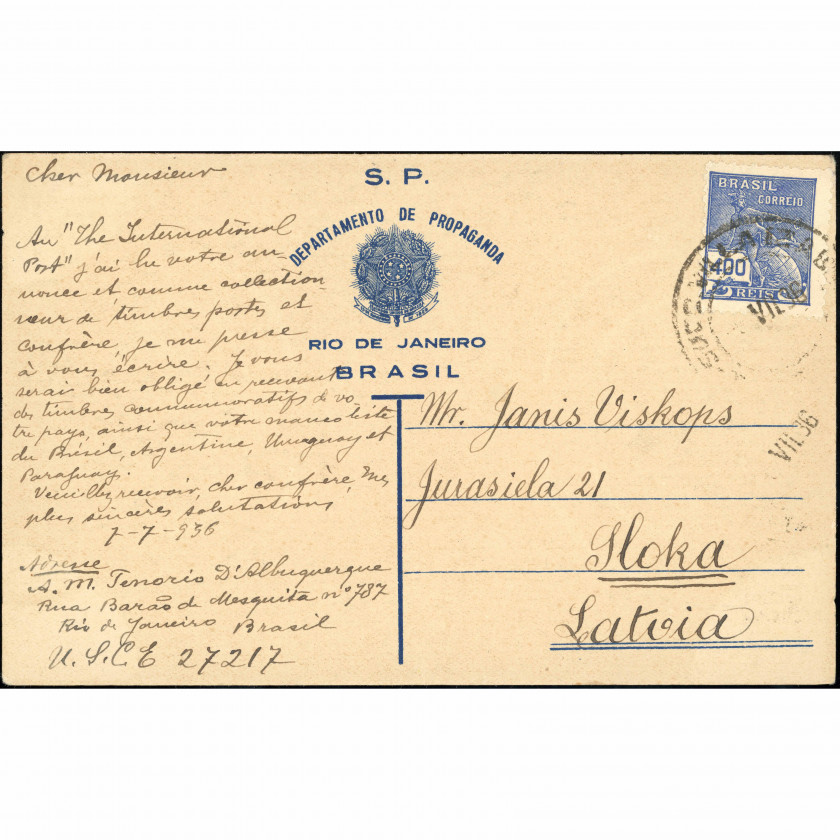 Cher Monsieur
Au "The International
Post" j'ai lu votre an
nonce et comme collection
neur de timbres postes et
confrère je me presse
à vous écrire. Je vous
serai bien obligé en recevant
des timbres commemoratifs de vo-
tre pays, ainsi que vôtre mancoliste
du Brésil, Argentine, Uruguay et
Paraguay.
Veuillez recevoir, cher confrère, mes
plus sincères salutations,
7-7-936
Adresse
A. M. Tenorio D'Albuquerque
Rua Barão de Mesquita nº 787
Rio de Janeiro Brasil
U.S.C.E 27217
S. P.
DEPARTAMENTO DE PROPAGANDA
RIO DE JANEIRO
BRASIL
BRASIL
CORREIO
400
REIS
VII.36
VII.36
Mr. Janis Viskops
Jurasiela 21
Sloka
Latvia